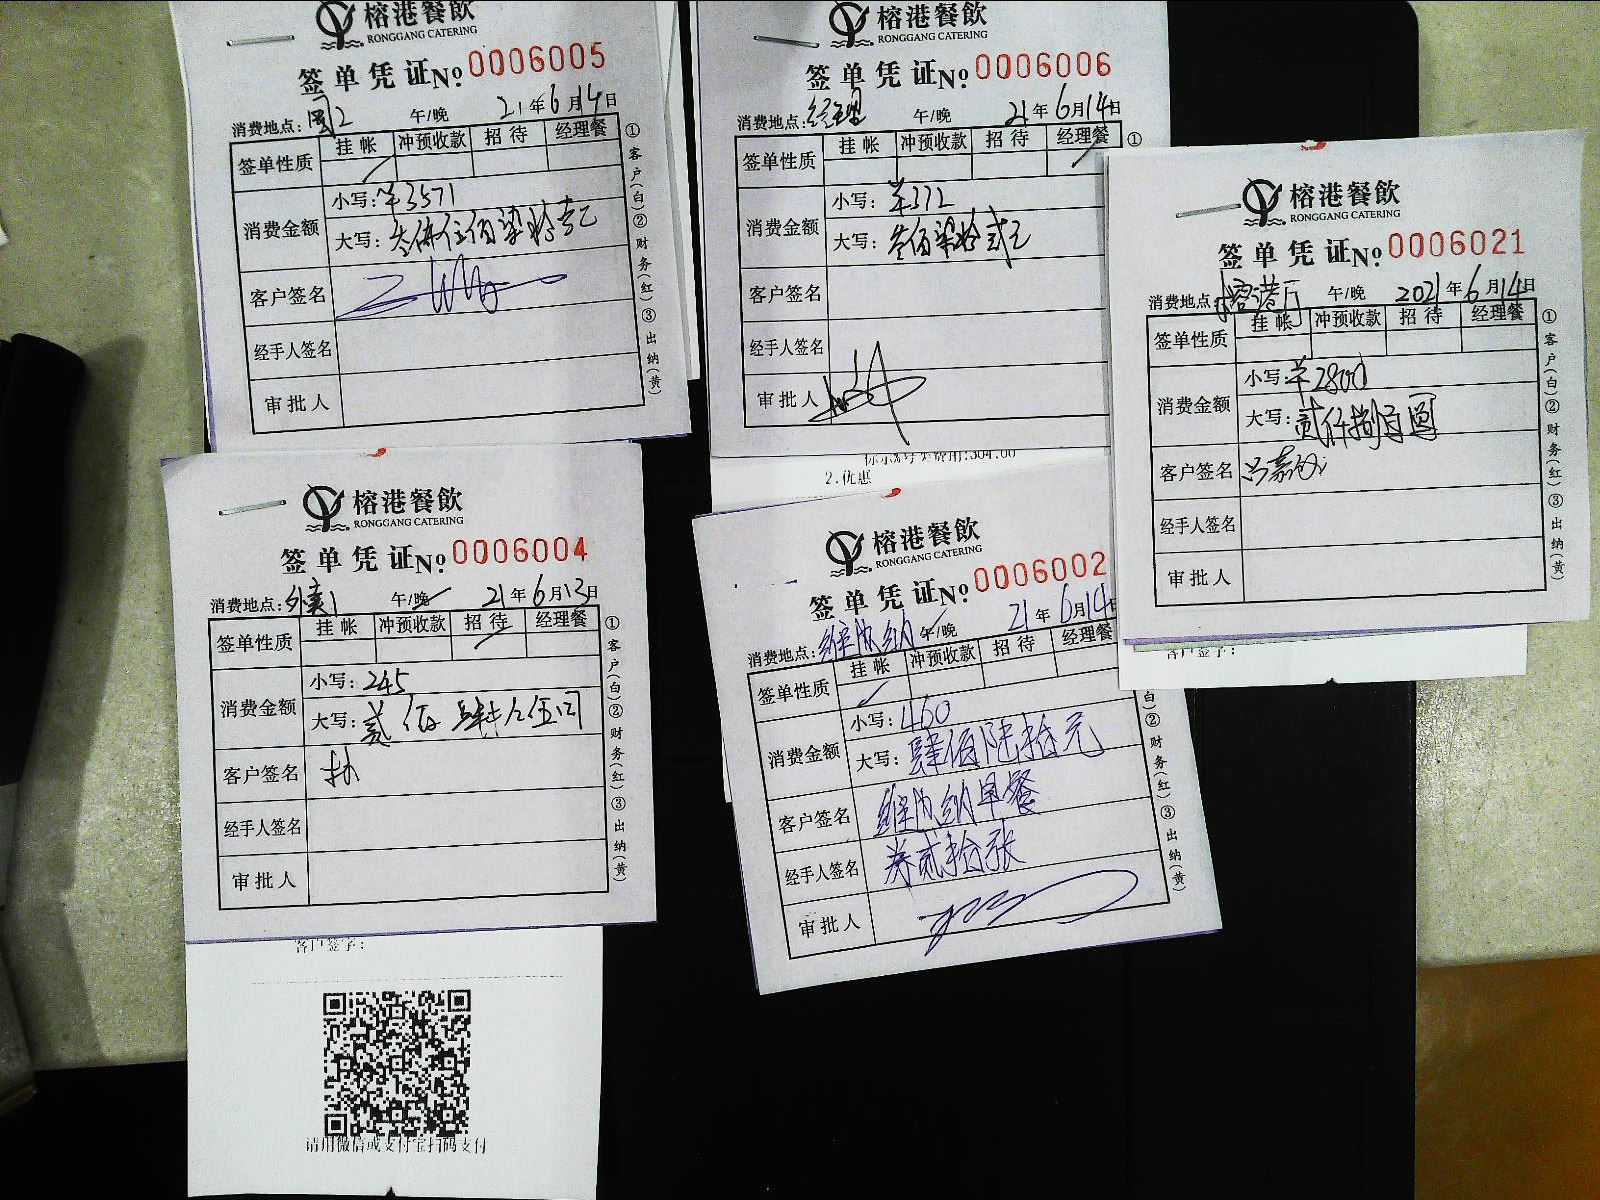 榕港餐飲
RONGGANG CATERING
签单凭证No 0006005
消费地点: 午/晚 21年6月14日
签单性质 挂帐 冲预收款 招待 经理餐
消费金额 小写:￥3571
大写:叁仟伍佰柒拾壹元
客户签名
经手人签名
审批人
①客户(白)②财务(红)③出纳(黄)
榕港餐飲
RONGGANG CATERING
签单凭证No 0006006
消费地点:经理 午/晚 21年6月14日
签单性质 挂帐 冲预收款 招待 经理餐
消费金额 小写:￥372
大写:叁佰柒拾贰元
客户签名
经手人签名
审批人
①
榕港餐飲
RONGGANG CATERING
签单凭证No 0006021
消费地点:榕港厅 午/晚 2021年6月14日
签单性质 挂帐 冲预收款 招待 经理餐
消费金额 小写:￥2800
大写:贰仟捌佰圆
客户签名
经手人签名
审批人
①客户(白)②财务(红)③出纳(黄)
客户签字:
榕港餐飲
RONGGANG CATERING
签单凭证No 0006004
消费地点: 午/晚 21年6月13日
签单性质 挂帐 冲预收款 招待 经理餐
消费金额 小写:245
大写:贰佰肆拾伍元
客户签名
经手人签名
审批人
①客户(白)②财务(红)③出纳(黄)
客户签字:
请用微信或支付宝扫码支付
2.优惠
榕港餐飲
RONGGANG CATERING
签单凭证No 0006002
消费地点:维也纳 午/晚 21年6月14
签单性质 挂帐 冲预收款 招待 经理餐
消费金额 小写:460
大写:肆佰陆拾元
客户签名 维也纳早餐
经手人签名 券贰拾张
审批人
白)②财务(红)③出纳(黄)